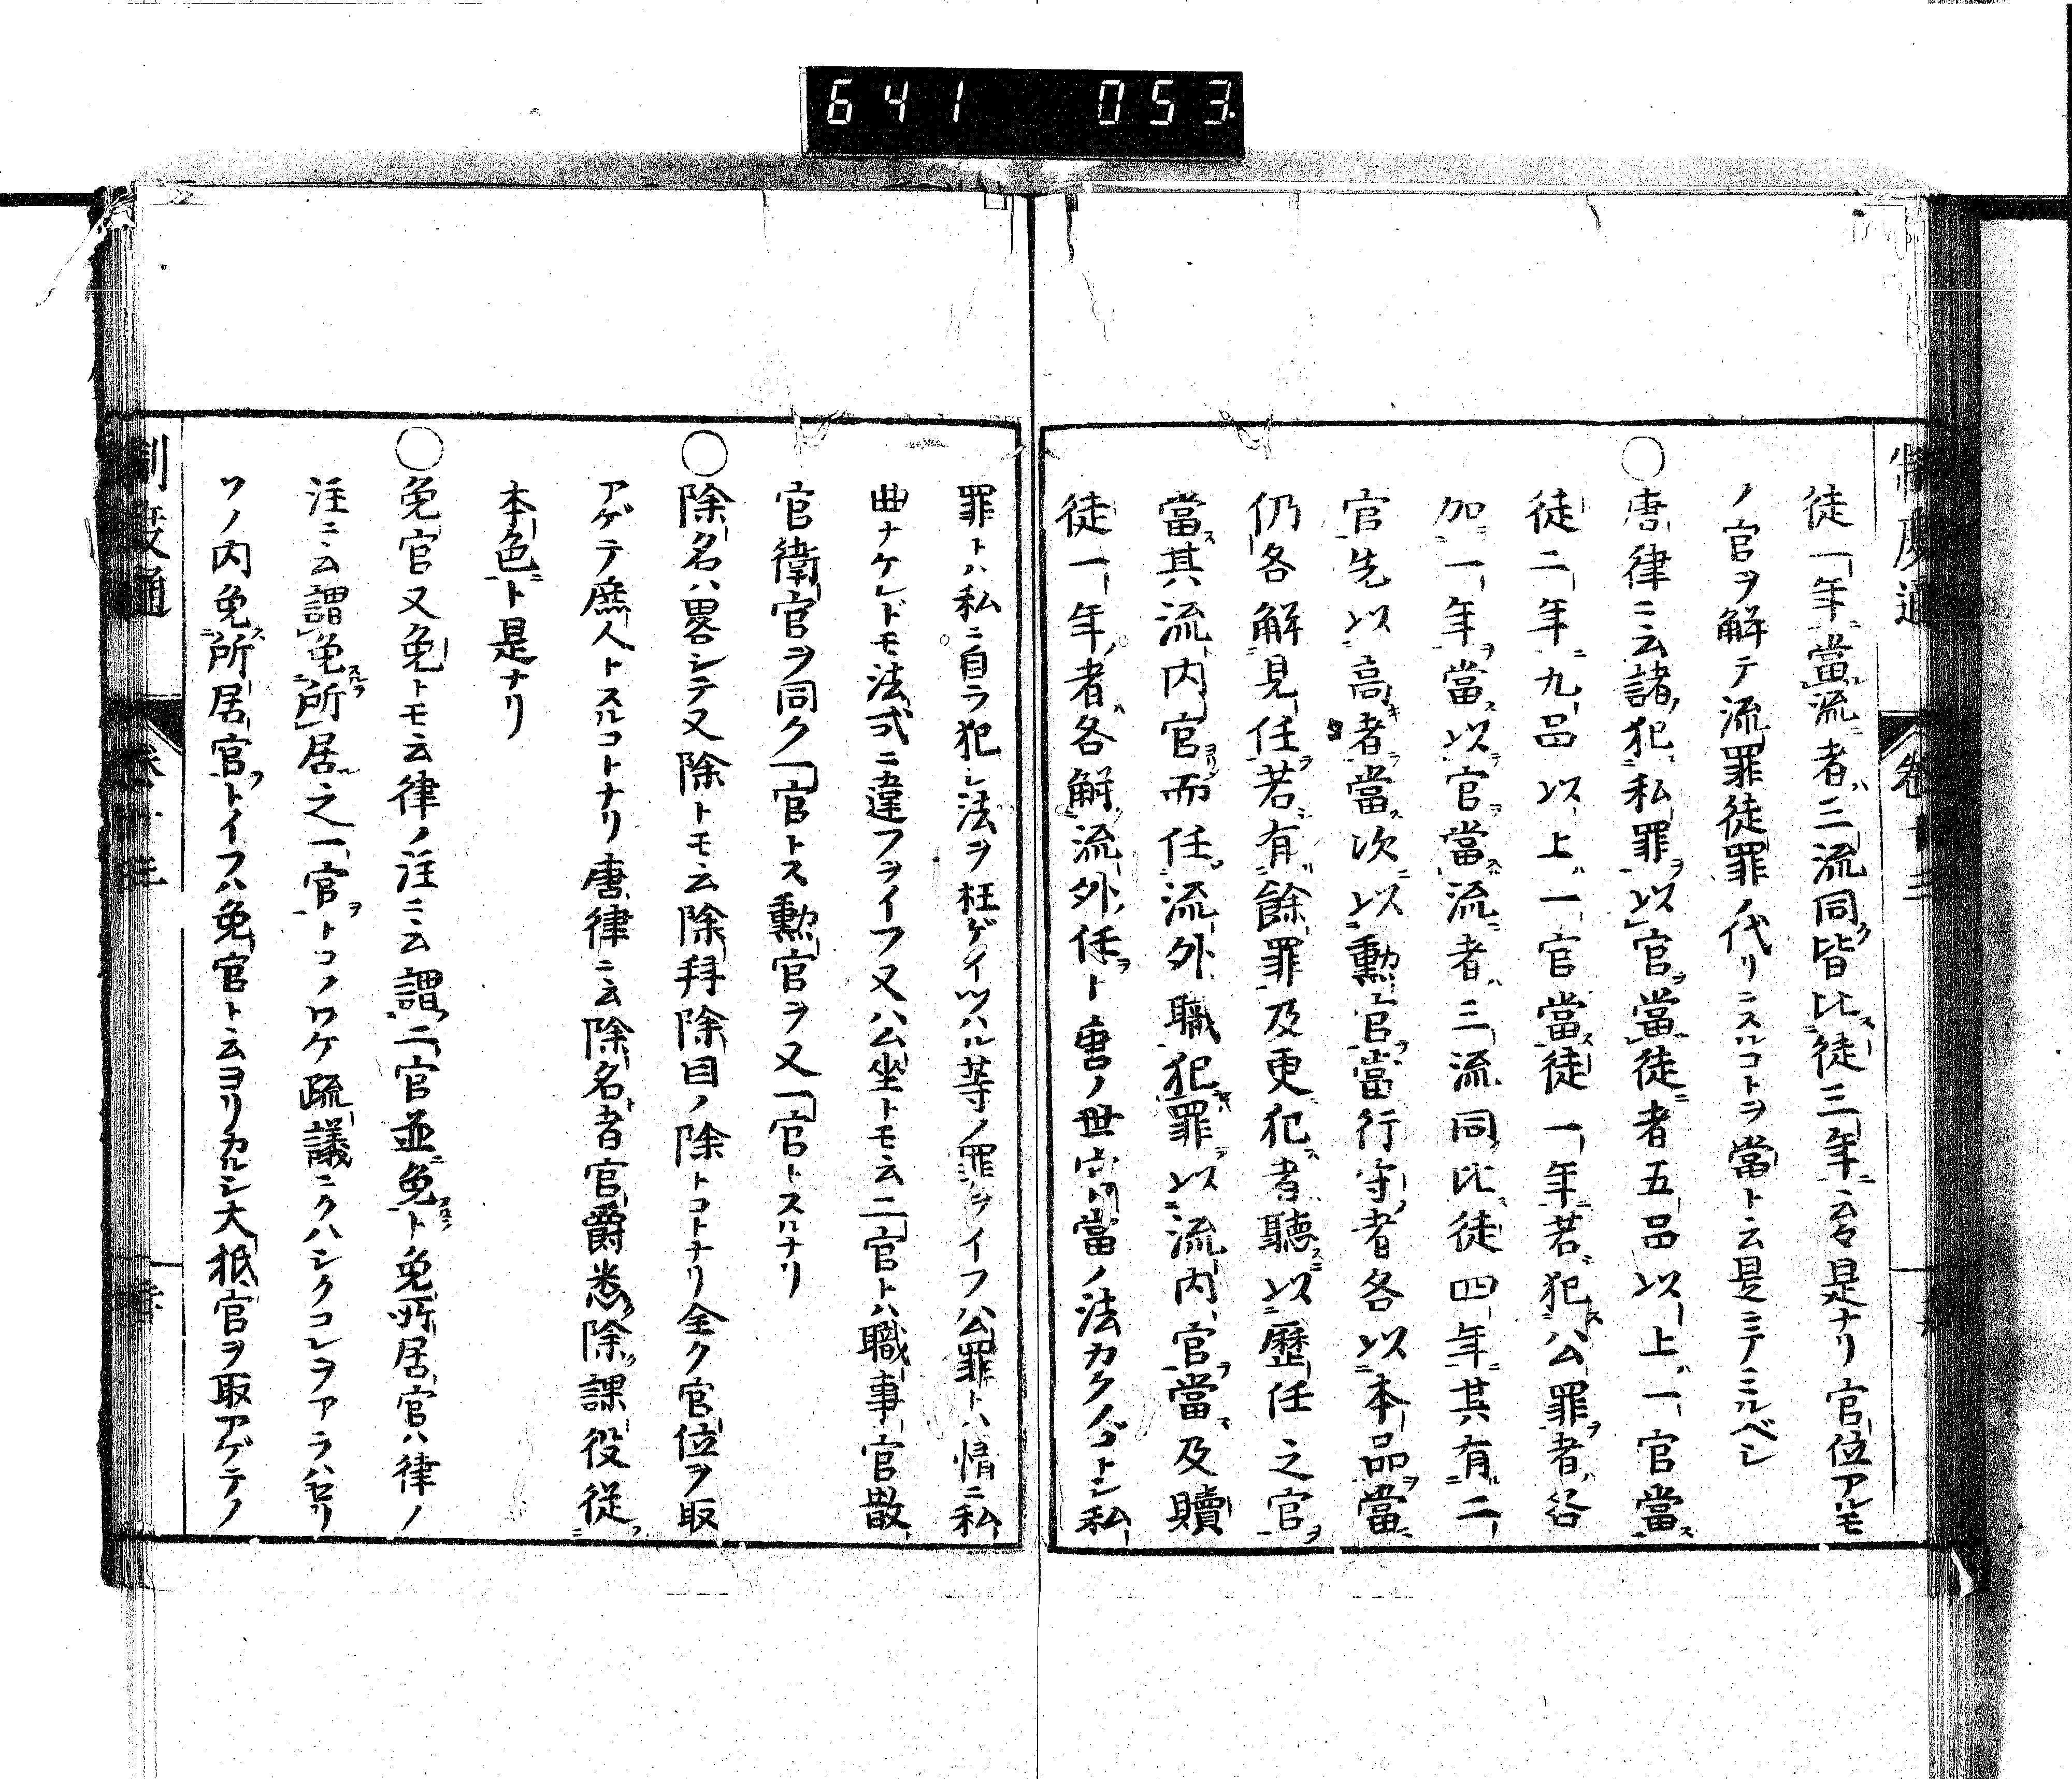 641 053
制度通 卷十三
徒一年當流者三流同皆比徒三年云々是ナリ官位アルモ
ノ官ヲ解テ流罪徒罪ノ代リニスルコトヲ當ト云是ニテミルベシ
○唐律ニ云諸犯私罪以官當徒者五品以上一官當
徒二年九品以上一官當徒一年若犯公罪者各
加一年當以官當流者三流同比徒四年其有二
官先以高者當次以勳官當行守者各以本品當
仍各解見任若有餘罪及更犯者聽以歷任之官
當其流内官而任流外職犯罪以流内官當及贖
徒一年者各解流外任ト唐ノ世官當ノ法カクノゴトシ私
罪トハ私ニ自ラ犯シ法ヲ枉ゲイツハル等ノ罪ヲイフ公罪トハ情ニ私
曲ナケレドモ法式ニ違フヲイフ又ハ公坐トモ云二官トハ職事官散
官衛官ヲ同ク一官トス勲官ヲ又一官トスルナリ
○除名ハ畧シテ又除トモ云除拜除目ノ除トコトナリ全ク官位ヲ取
アゲテ庶人トスルコトナリ唐律ニ云除名者官爵悉除課役從
本色ト是ナリ
○免官又免トモ云律ノ注ニ云謂二官並免ト免所居官ハ律ノ
注ニ云謂免所居之一官トコノワケ疏議ニクハシクコレヲアラハセリ
ソノ内免所居官トイフハ免官ト云ヨリカルシ大抵官ヲ取アゲテノ
制度通